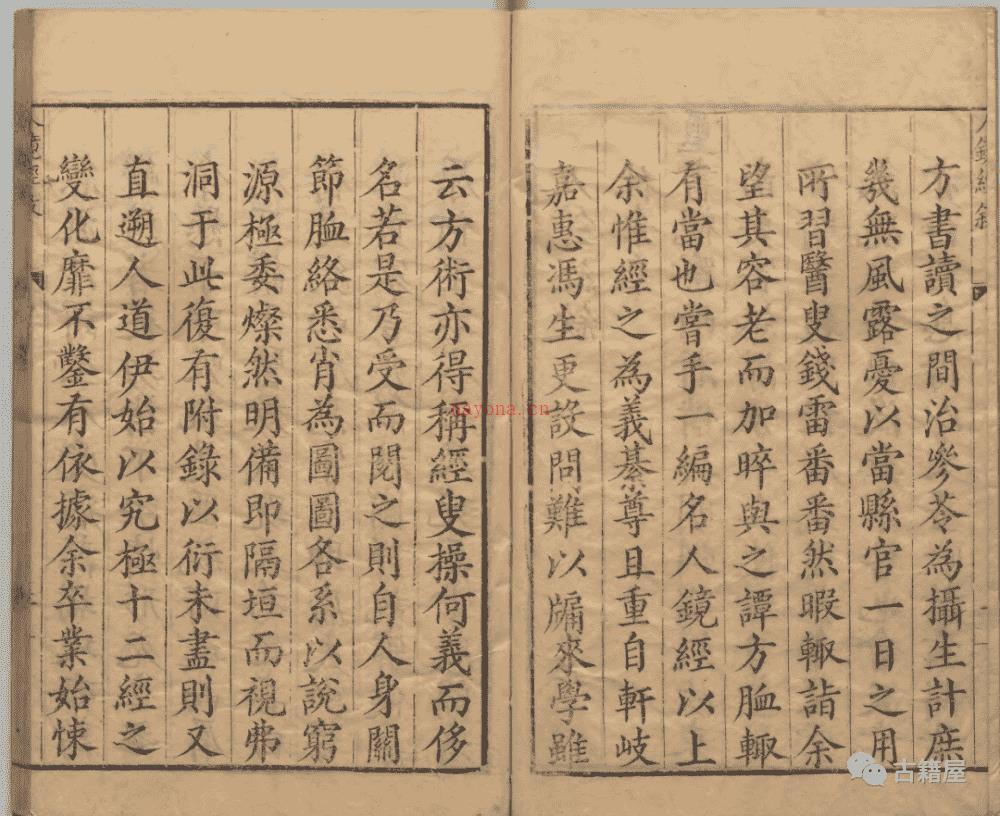 方書讀之間治參苓為攝生計庶
幾無風露憂以當縣官一日之用
所習醫叟錢雷番番然暇輙詣余
望其容老而加晬與之譚方脉輙
有當也嘗手一編名人鏡經以上
余惟經之為義綦尊且重自軒岐
嘉惠馮生更設問難以牖來學雖
云方術亦得稱經叟操何義而侈
名若是乃受而閱之則自人身關
節脉絡悉肖為圖圖各系以說窮
源極委燦然明備即隔垣而視弗
洞于此復有附錄以衍未盡則又
直遡人道伊始以究極十二經之
變化靡不鑿有依據余卒業始悚
nayona.cn
古籍屋